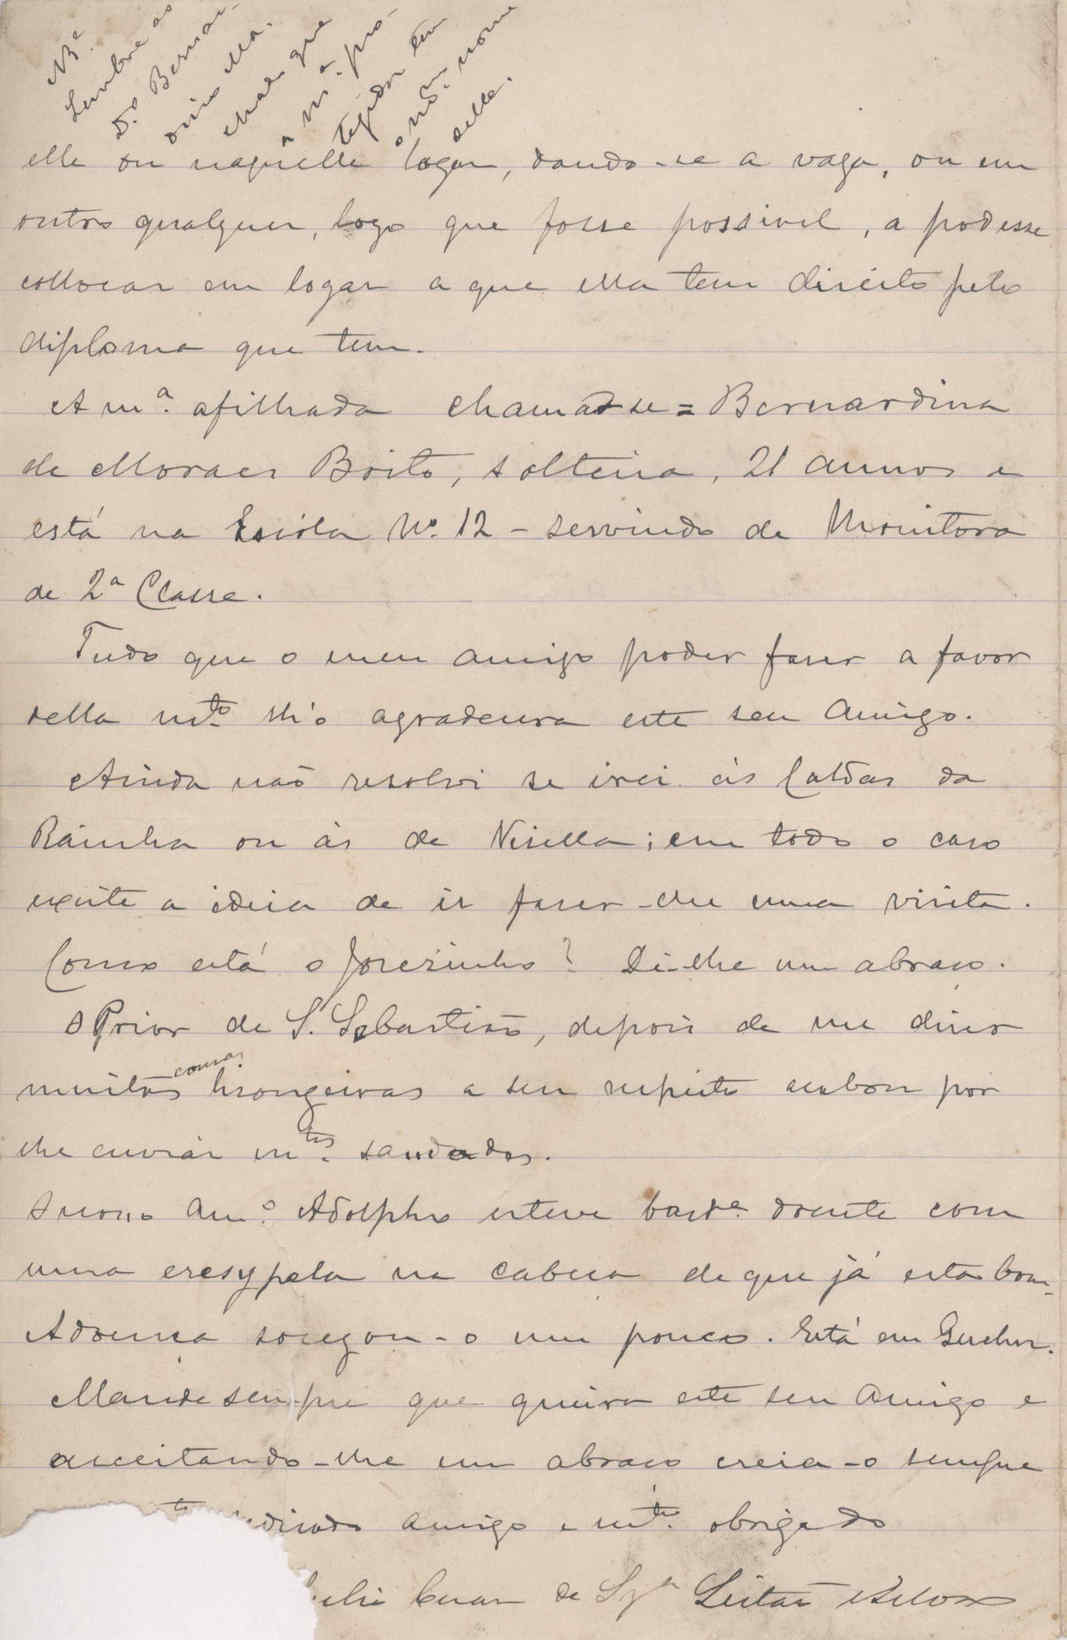 NB.
Lembre ao
D.º Bernar-
dino Ma.
chado que
a m.ª pro-
tegida tem
o m.mo nome
delle.
elle ou naquelle logar, dando-se a vaga, ou em
outro qualquer, logo que fosse possivel, a podesse
collocar em logar a que ella tem direito pelo
diploma que tem.
A m.ª afilhada chama-se = Bernardina
de Moraes Brito, solteira, 21 annos e
está na Escola Nº. 12 - servindo de Monitora
de 2ª Classe.
Tudo que o meu amigo poder fazer a favor
della m.to lh'o agradecera este seu amigo.
Ainda não resolvi se irei ás Caldas da
Rainha ou ás de Visella; em todo o caso
existe a ideia de ir fazer-lhe uma visita.
Como está o Josésinho? Dê-lhe um abraço.
O Prior de S. Sebastião, depois de me dizer
muitas cousas lisongeiras a seu respeito acabou por
lhe enviar m.tas saudades.
O nosso am.º Adolpho esteve bast.e doente com
uma eresypela na cabeça de que já está bom.
A doença socegou-o um pouco. Está em
Mande sempre que queira este seu amigo e
acceitando-lhe um abraço creia-o sempre
dedicado amigo e m.to obrigado
Cesar de Leitão